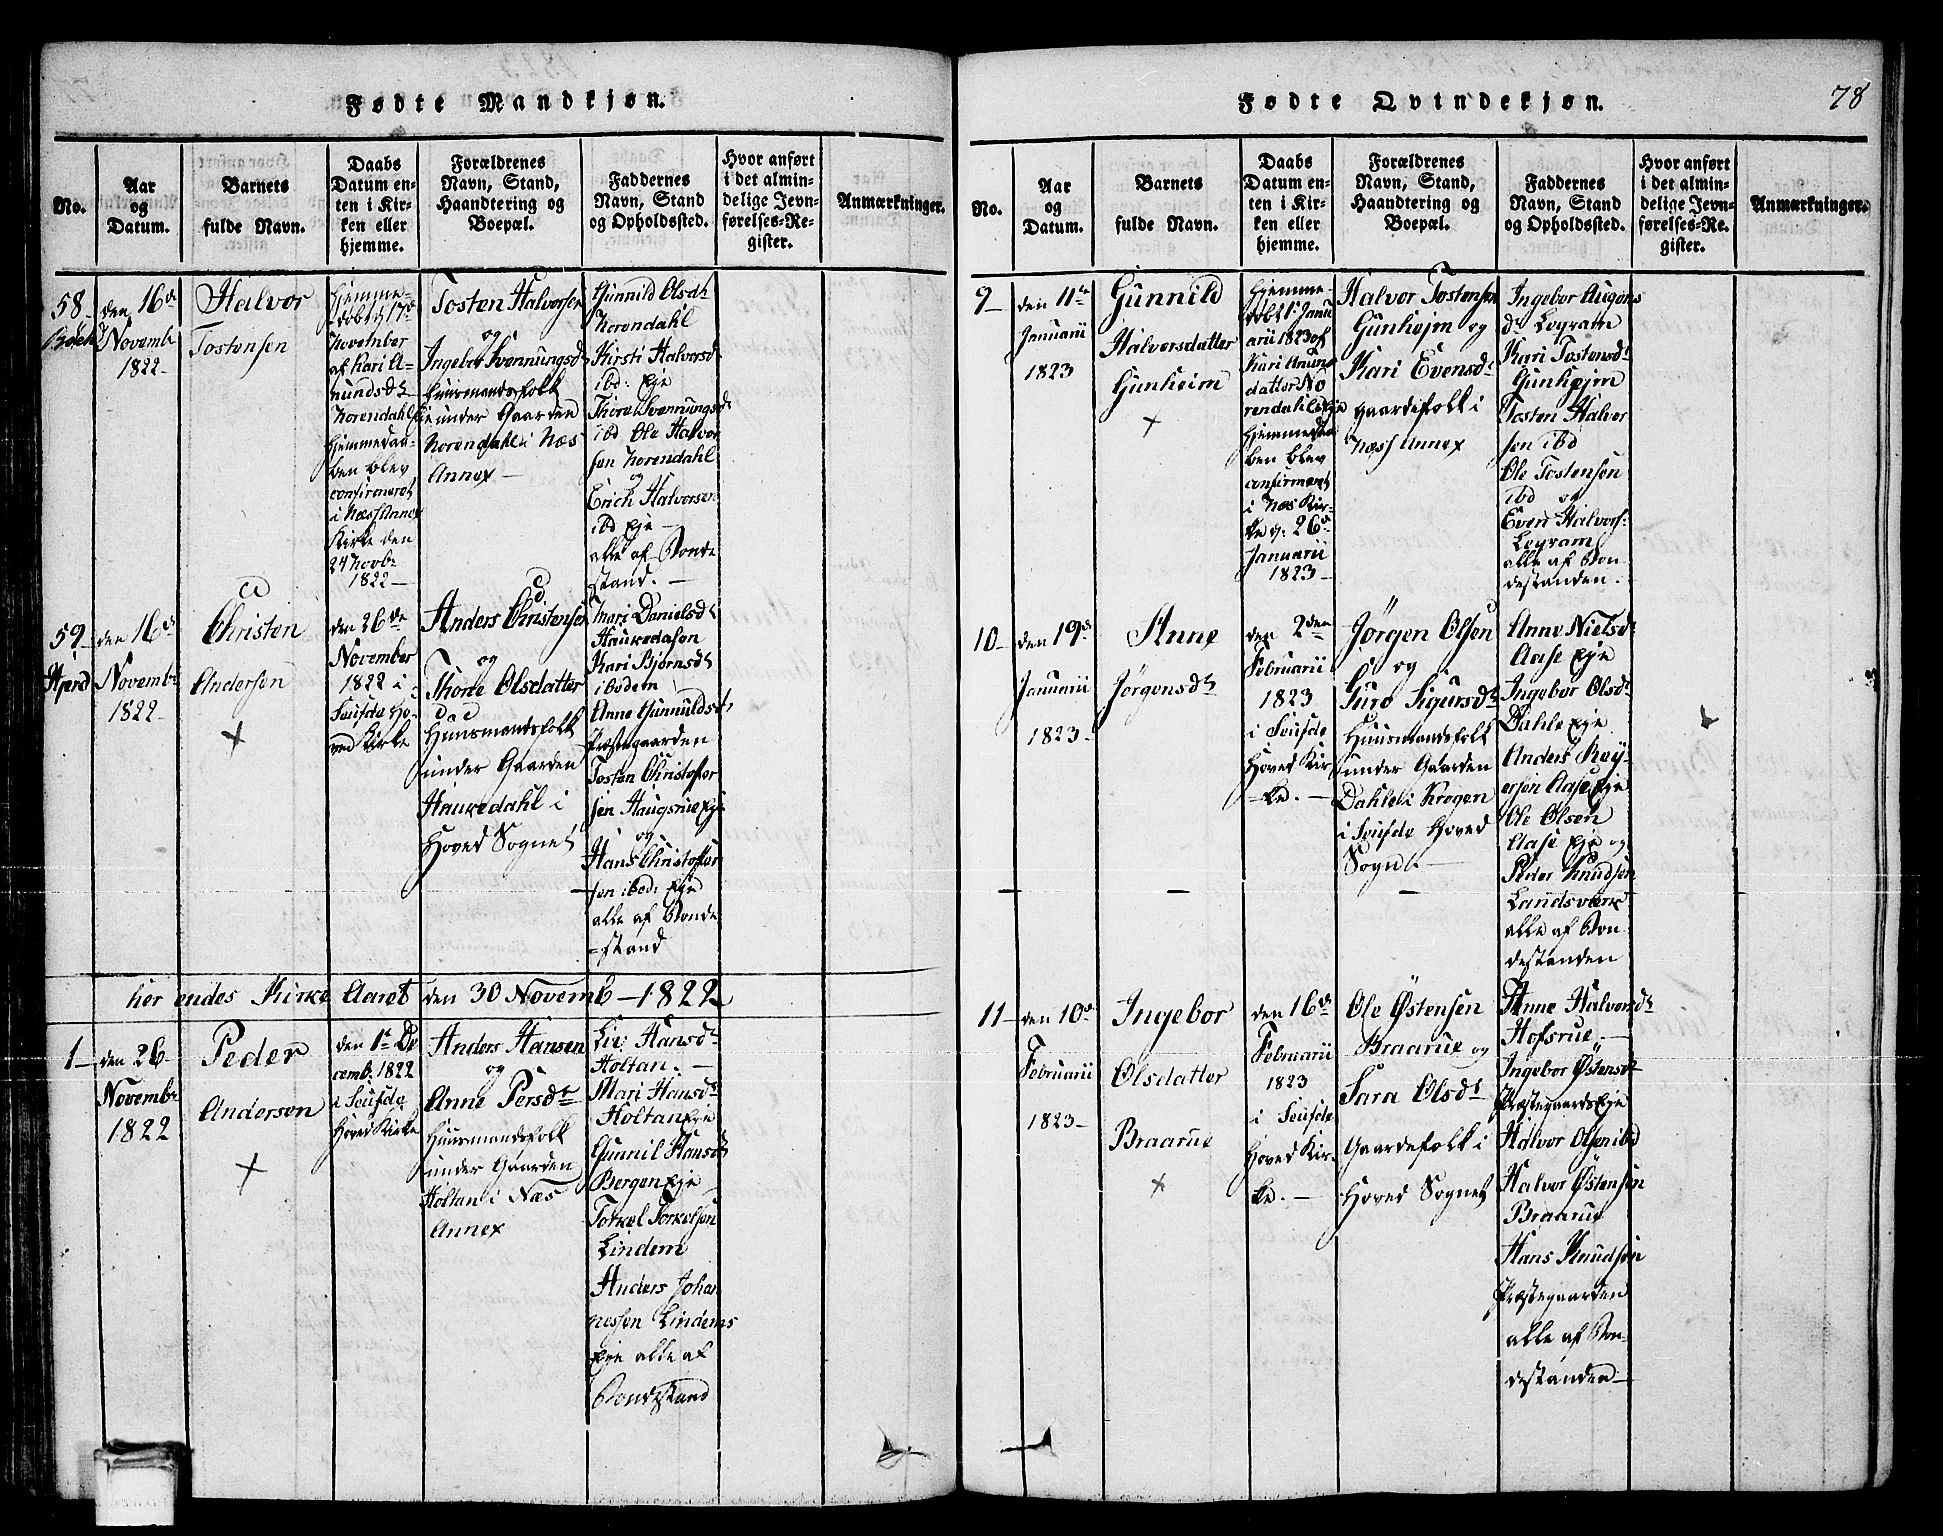 Fødte Mandkjøn.
No.
Aar
og
Datum.
Barnets
fulde Navn.
Daabs
Datum en-
ten i Kir-
ken eller
hjemme.
Forældrenes
Navn, Stand,
Haandtering og
Boepæl.
Faddernes
Navn, Stand
og Opholdssted.
Hvor anført
i det almin-
delige Jevn-
førelses-Re-
gister.
Anmærkninger.
58
den 16de
Novembr
1822
Halvor
Tostensen
Hjemme-
døbt d 17de
November
af Kari A-
mundsdt
Norendahl Eje
Hjemmedaa-
ben blev
confirmeret
i Næss Annex
Kirke den
24 Novbr
1822
Tosten Halvorsen
og
Ingebor Svennungsd
Huusmandsfolk
under Gaarden
Norendahl i Næs
Annex
Gunnild Olsdt
Norendahl
Kirsti Halvorsd
ibd: Eje
Thore Svennungsd
ibd Ole Halvor
sen Norendahl
og
Erich Halvorsen
ibd Eje
alle af Bonde
stand.
59
den 16de
Novembr
1822
Christen
Andersen
den 26de
November
1822 i
Soufde Ho-
ved Kirke
Anders Christensen
og
Thone Olsdatter
Huusmandsfolk
under Gaarden
Haukedahl i
Hoved Sognet
Mari Danielsdt
Haukedalen
Kari Bjørnsdt
ibodem
Anne Gunnuldsd
Præstegaarden
Tosten Christoffer
sen Haugsrue Eje
og
Hans Christoffer
sen ibod: Eje
alle af Bonde
stand
her endes Kirke Aaret den 30 Novemb 1822
1
den 26
Novembr
1822
Peder
Anderson
den 1te De
cemb: 1822
i Soufde
Hoved Kirke
Anders Hansen
og
Anne Persdtr
Huusmandsfolk
under Gaarden
Holtan i Næs
Annex
Liv Hansdr
Holtan.
Mari Hansdr
Holtan Eje
Gunnil Hansd
Bergen Eje
Torkel Torkelsen
Lindem
Anders Johan
nessen Lindems
Eje alle af
Bondestand
Fødte Qvindekjøn.
78
No.
Aar
og
Datum.
Barnets
fulde Navn.
Daabs
Datum en-
ten i Kir-
ken eller
hjemme.
Forældrenes
Navn, Stand,
Haandtering og
Boepæl.
Faddernes
Navn, Stand
og Opholdssted.
Hvor anført
i det almin-
delige Jevn-
førelses-Re-
gister.
Anmærkninger.
9
den 11te
Januarii
1823
Gunnild
Halvorsdatter
Gunheim
Hjemme-
døbt Janu
arii 1823 af
Kari Amun
datter No
rendahls Eje
Hjemmedaa
ben blev
confirmeret
i Næs Kir-
ke d: 26de
Januarii
1823
Halvor Tostensen
Gunhejm og
Kari Evensdr
Gaardefolk i
Næss Annex
Ingebor Augons
dr Legram
Kari Tostensdt
Gunhejm
Tosten Halvor
sen ibd
Ole Tostensen
ibd og
Even Halvors:
Legram
alle af Bon
destanden.
10
den 19de
Januarii
1823
Anne
Jørgensdt
den 2den
Februarii
1823
i Soufde
Hoved Kir-
ke.
Jørgen Olsen
og
Guro Sigursdt
Huusmandsfolk
under Gaarden
Dahle i Krogen
i Soufde Hoved
Sogn.
Anne Nielsdr
Aase Eje
Ingebor Olsdt
Dahle Eje
Anders Røy
ersen Aase Eje
Ole Olsen
Aase Eje og
Peder Knudsen
Landsværk
alle af Bon
destanden
11
den 10de
Februarii
1823
Ingebor
Olsdatter
Braarue
den 16de
Februarii
1823
i Soufde
Hoved Kir-
ke.
Ole Østensen
Braarue og
Sara Olsdt
Gaardefolk i
Hoved Sognet
Anne Halvorsdt
Hofsrue
Ingebor Østensdr
Præstegaards Eje
Halvor Olsen ibd
Halvor Østensen
Braarue
Hans Knudsen
Præstegaarden
alle af Bon-
destanden